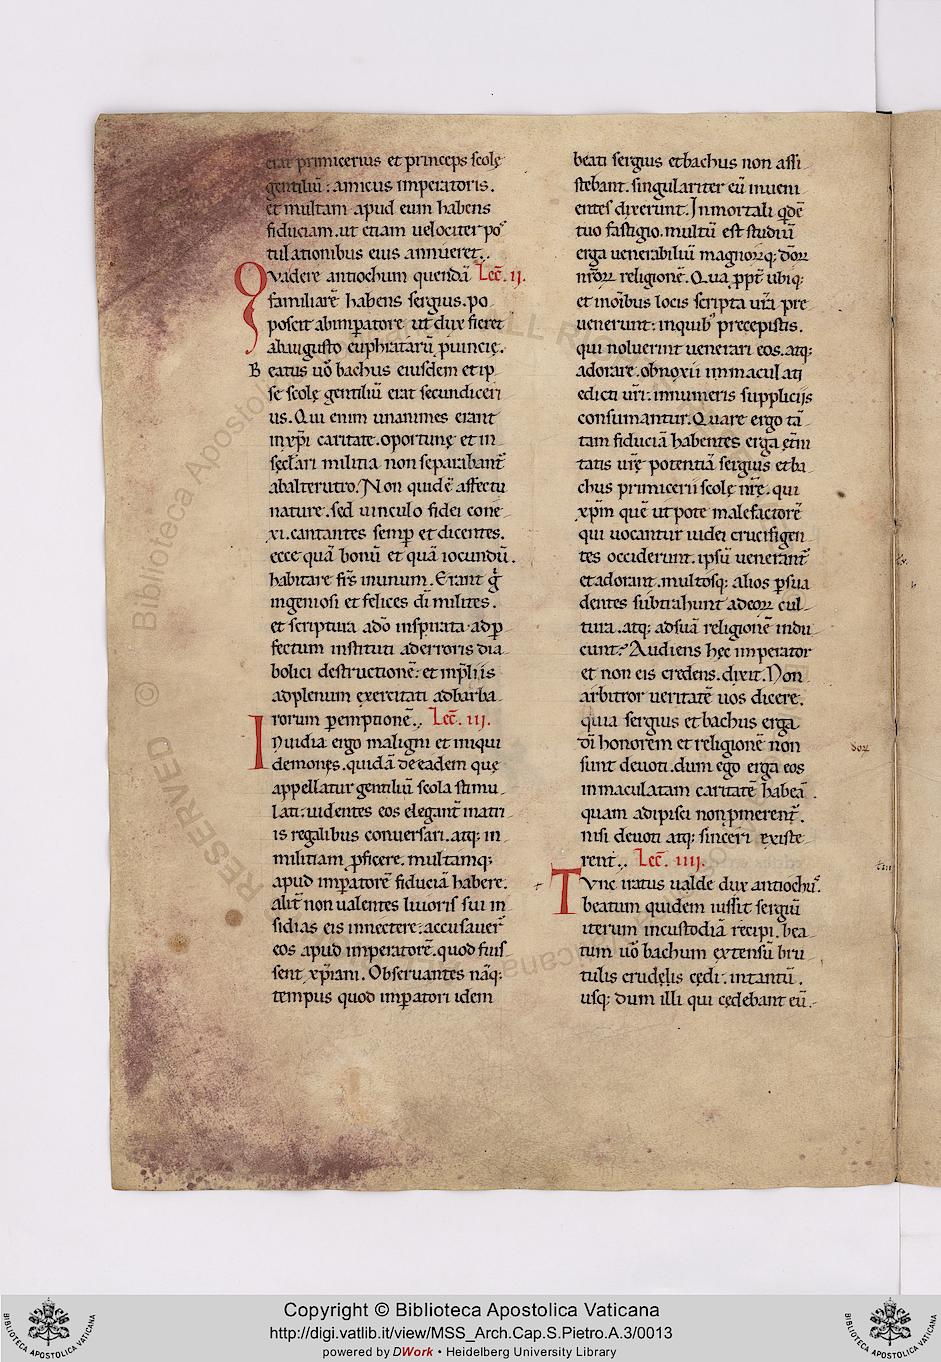 erat primicerius et princeps scolę
gentiliū: amicus imperatoris.
et multam apud eum habens
fiduciam. ut etiam velociter pos
tulationibus eius annueret..
Qvadere antiochum quendā Lec̄. ii.
familiarē habens sergius. po
poscit abimꝑatore ut dux fieret
abaugusto euphratarū ꝓuincię.
Beatus uo᷎ bachus eiusdem et ip
se scolę gentiliū erat secundiceri
us. Qui enim unanimes erant
in xp̄i caritate. oportunę et in
sęclari militia non separabant᷑
abalterutro. Non quidē affectu
nature. sed uinculo fidei cone
xi. cantantes semꝑ et dicentes.
ecce quā bonū et quā iocundū.
habitare fr̄s inunum. Erant g̊
ingeniosi et felices dī milites.
et scriptura adō inspirata. adꝑ
fectum instituti aderroris dia
bolici destructionē: et inp̄liis
adplenum exercitati adbarba
rorum ꝑemptionē.. Lec̄. iii.
Inuidia ergo maligni et iniqui
demones. quidā de eadem que
appellatur gentiliū scola stimu
lati: uidentes eos elegant᷑ inatri
is regalibus conuersari. atq; in
militiam ꝓficere. multamq;
apud imꝑatorē fiduciā habere.
alit᷑ non ualentes liuoris sui in
sidias eis innectere: accusauer᷑
eos apud imperatorē. quod fuis
sent xp̄iani. Obseruantes nāq;
tempus quod imꝑatori idem
beati sergius etbachus non assi
stebant. singulariter eū inueni
entes dixerunt. Inmortali qdē
tuo fastigio. multū est studiū
erga uenerabiliū magnorūq; dōꝝ
nr̄oꝝ religionē. Qua ꝓpt᷑ ubiq;
et inoībus locis scripta ur̄a pre
uenerunt: inquib᷒ precepistis.
qui noluerint uenerari eos. atq;
adorare. obnoxii immaculati
edicti ur̄i: innumeris suppliciis
consumantur. Quare ergo tā
tam fiduciā habentes erga ęt̄ni
tatis ur̄ę potentiā sergius etba
chus primicerii scolę nr̄ę. qui
xp̄m quē ut pote malefactorē
qui uocantur iudei crucifigen
tes occiderunt. ipsū uenerant᷑
etadorant. multosq; alios ꝑsua
dentes subtrahunt adeoꝝ cul
tura. atq; adsuā religionē indu
cunt. Audiens hęc imperator
et non eis credens. dixit. Non
arbitror ueritatē uos dicere.
quia sergius et bachus erga
dī honorem et religionē non
sunt deuoti. dum ego erga eos
inmaculatam caritatē habeā.
quam adipisci nonꝓmerent᷑.
nisi deuoti atq; sinceri existe
rent.. Lec̄. iiii.
Tvnc iratus ualde dux antiochus.
beatum quidem iussit sergiū
iterum incustodiā recipi. bea
tum uo᷎ bachum extensū bru
tulis crudęlis cędi. intantū.
usq; dum illi qui cędebant eū.
Copyright © Biblioteca Apostolica Vaticana
http://digi.vatlib.it/view/MSS_Arch.Cap.S.Pietro.A.3/0013
powered by DWork • Heidelberg University Library
BIBLIOTECA APOSTOLICA VATICANA
BIBLIOTECA APOSTOLICA VATICANA